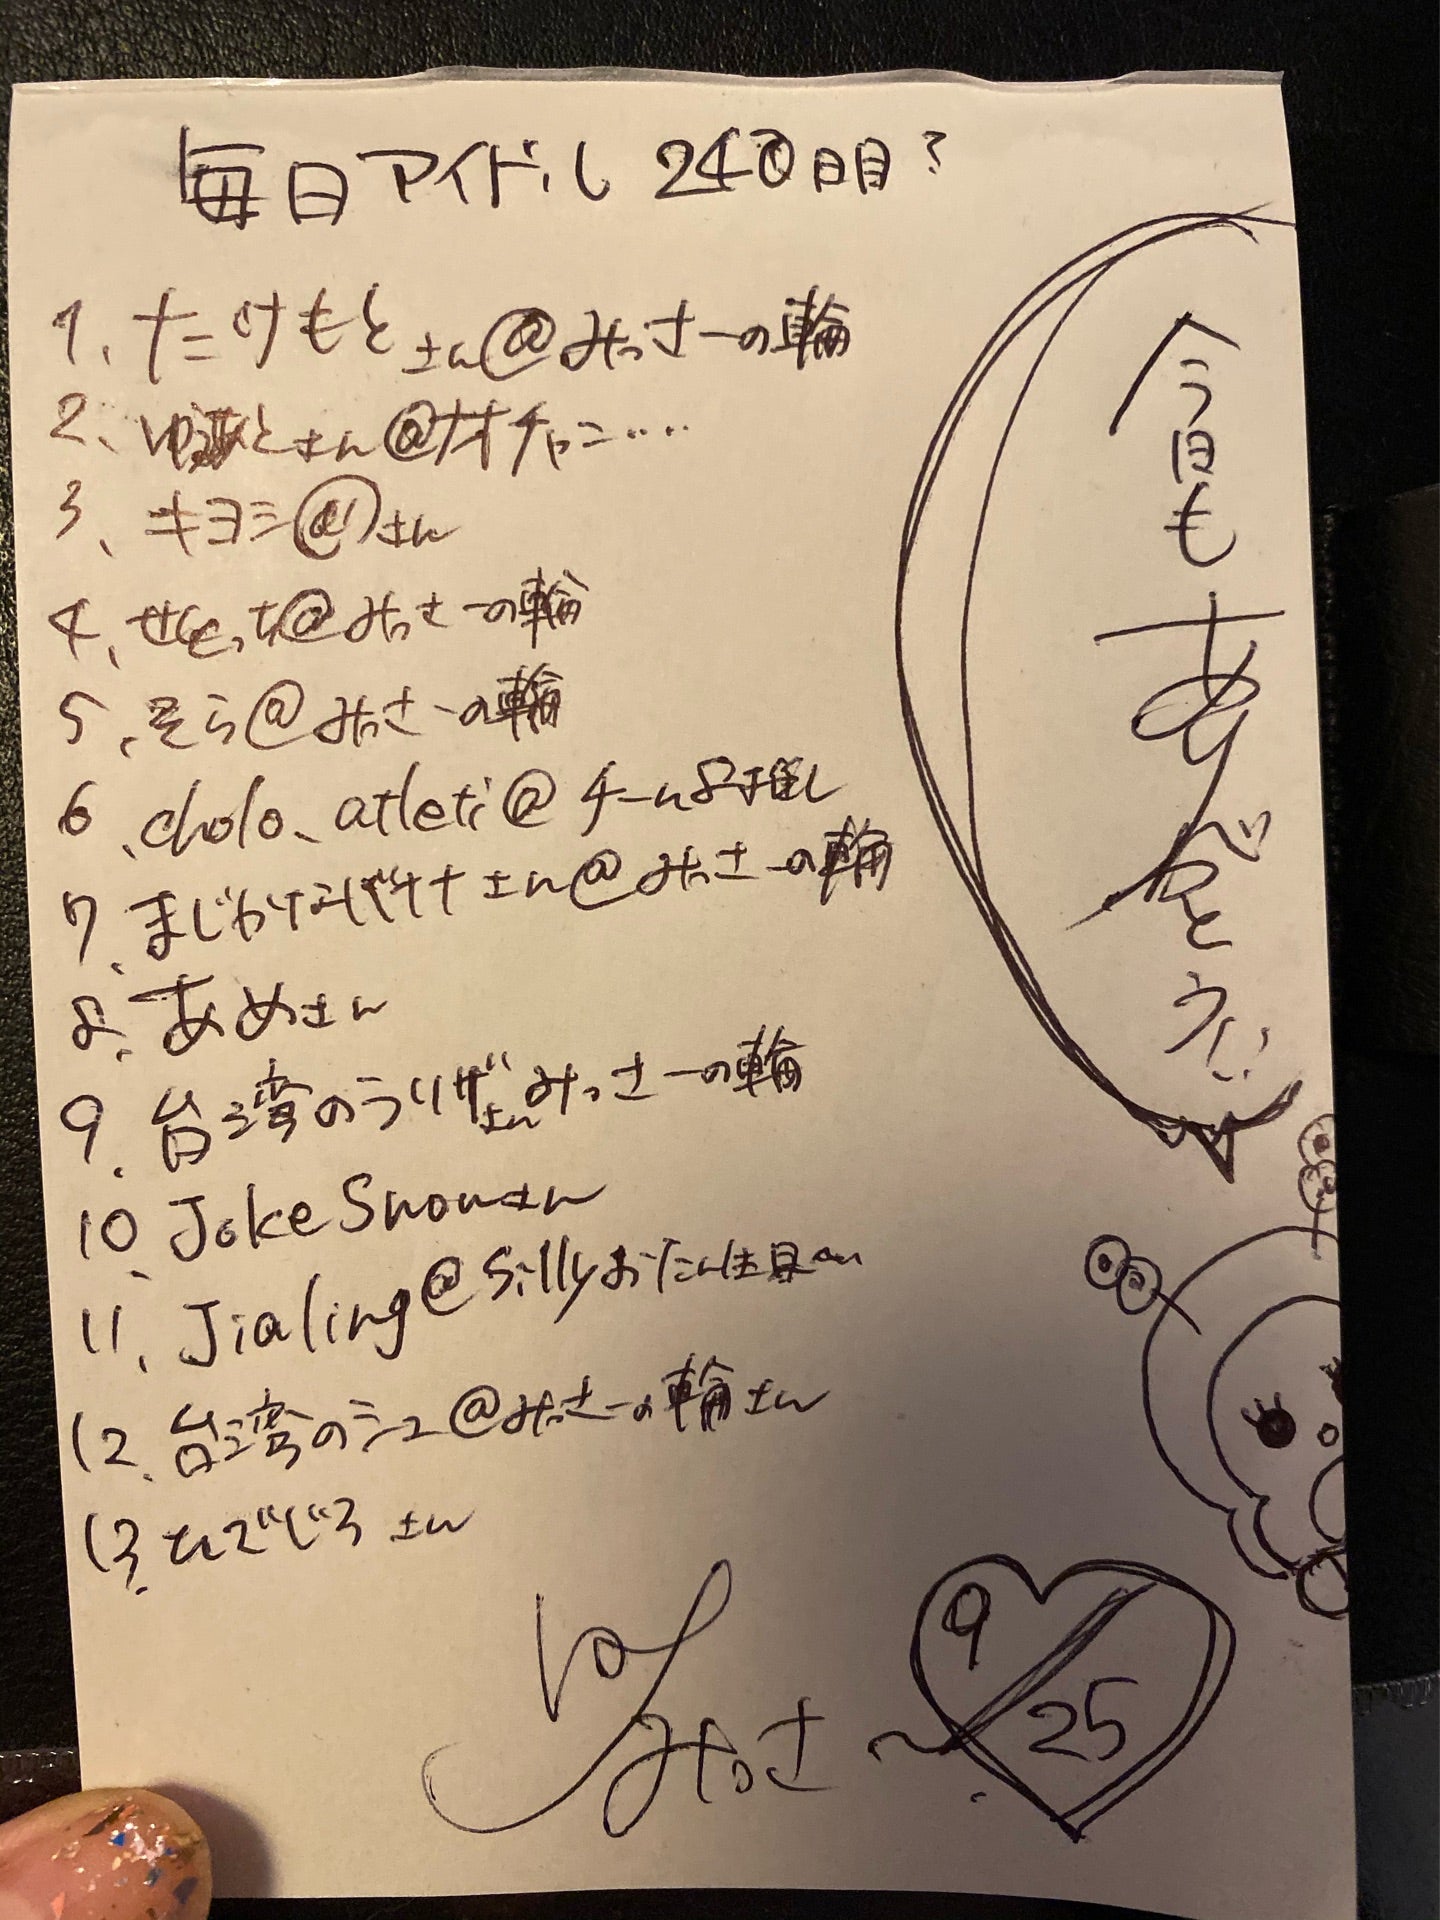 毎日アイドル 240日目?
1、たけもとさん@みっさーの輪
2、さん@ナオチャン‥‥
3、キヨシ@さん
4、せとっち@みっさーの輪
5、そら@みっさーの輪
6、cholo、atleti@チーム8推し
7、まじかけさん@みっさーの輪
8、あめさん
9、台湾のうりザさんみっさーの輪
10、Joke Snowさん
11、Jialing@Silly
12、台湾のシュ@みっさーの輪さん
13、ひでじろさん
今日もありがとう
みっさ〜
9/25